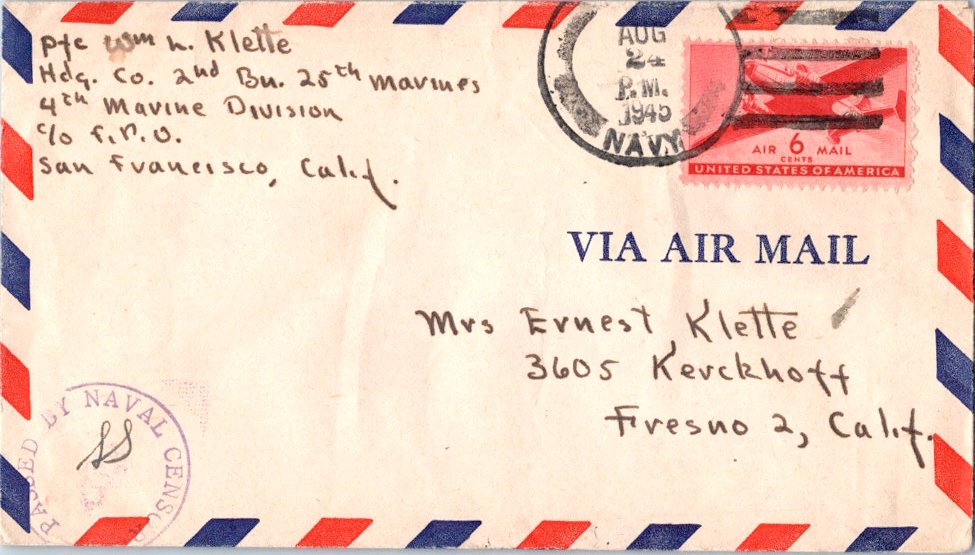 Pfc Wm L. Klette
Hdq. Co. 2nd Bn. 25th Marines
4th Marine Division
c/o F.P.O.
San Francisco, Calif.
AUG
24
P.M.
1945
NAVY
AIR 6 MAIL
CENTS
UNITED STATES OF AMERICA
VIA AIR MAIL
Mrs Ernest Klette
3605 Kerckhoff
Fresno 2, Calif.
PASSED BY NAVAL CENSOR